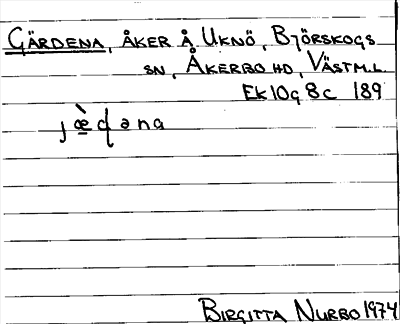 GÄRDENA, ÅKER Å UKNÖ, BJÖRSKOGS
SN, ÅKERBO HD, VÄSTM.L.
EK 10g 8c 189
jæ̀ɖəna
BIRGITTA NURBO 1974